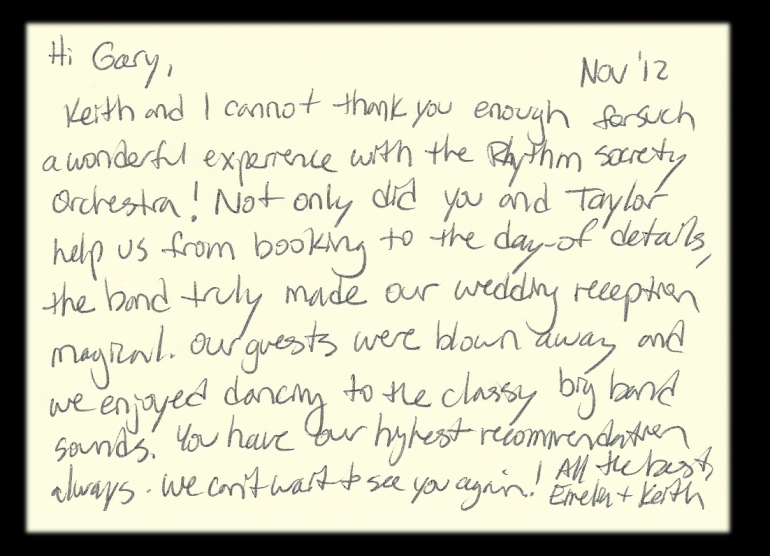 Hi Gary,
Nov '12
Keith and I cannot thank you enough for such
a wonderful experience with the Rhythm society
Orchestra! Not only did you and Taylor
help us from booking to the day-of details,
the band truly made our wedding reception
magical. Our guests were blown away and
we enjoyed dancing to the classy big band
sounds. You have our highest recommendation
always. We can't wait to see you again! All the best,
+ Keith